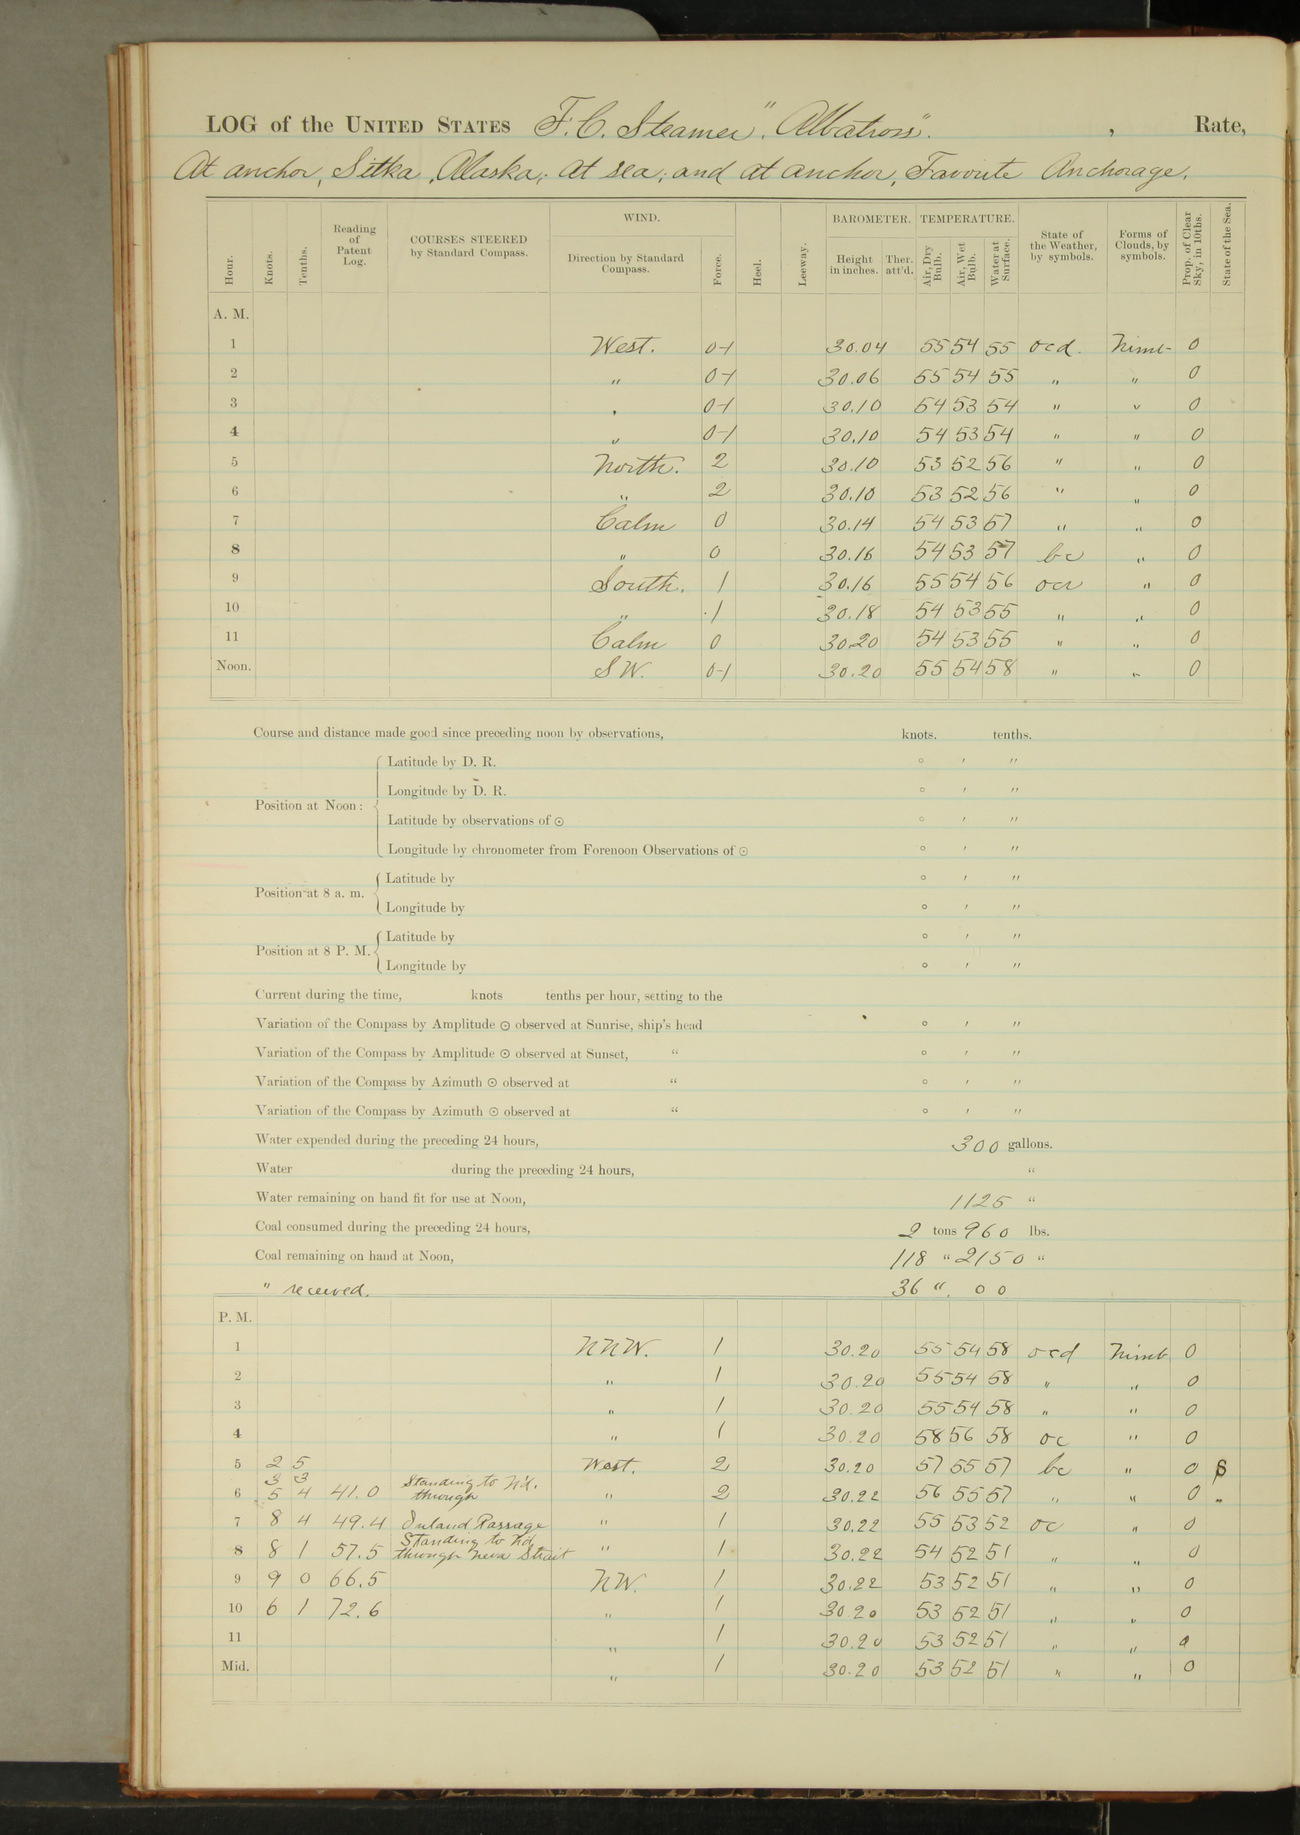 LOG of the UNITED STATES F. C. Steamer "Albatross". , Rate,
At anchor, Sitka, Alaska; at sea; and at anchor, Favorite Anchorage.
Hour. Knots. Tenths. Reading of Patent Log. COURSES STEERED by Standard Compass. WIND. Direction by Standard Compass. Force. Heel. Leeway. BAROMETER. Height in inches. Ther. att'd. TEMPERATURE. Air, Dry Bulb. Air, Wet Bulb. Water at Surface. State of the Weather, by symbols. Forms of Clouds, by symbols. Prop. of Clear Sky, in 10ths. State of the Sea.
A. M.
1 West. 0-1 30.04 55 54 55 ocd. Nimb- 0
2 " 0-1 30.06 55 54 55 " " 0
3 " 0-1 30.10 54 53 54 " " 0
4 " 0-1 30.10 54 53 54 " " 0
5 North. 2 30.10 53 52 56 " " 0
6 " 2 30.10 53 52 56 " " 0
7 Calm 0 30.14 54 53 57 " " 0
8 " 0 30.16 54 53 57 bc " 0
9 South. 1 30.16 55 54 56 ocr " 0
10 " 1 30.18 54 53 55 " " 0
11 Calm 0 30.20 54 53 55 " " 0
Noon. SW. 0-1 30.20 55 54 58 " " 0
Course and distance made good since preceding noon by observations, knots. tenths.
Latitude by D. R. ° ′ ″
Longitude by D. R. ° ′ ″
Position at Noon:
Latitude by observations of ☉ ° ′ ″
Longitude by chronometer from Forenoon Observations of ☉ ° ′ ″
Latitude by ° ′ ″
Position at 8 a. m.
Longitude by ° ′ ″
Latitude by ° ′ ″
Position at 8 P. M.
Longitude by ° ′ ″
Current during the time, knots tenths per hour, setting to the
Variation of the Compass by Amplitude ☉ observed at Sunrise, ship's head ° ′ ″
Variation of the Compass by Amplitude ☉ observed at Sunset, " ° ′ ″
Variation of the Compass by Azimuth ☉ observed at " ° ′ ″
Variation of the Compass by Azimuth ☉ observed at " ° ′ ″
Water expended during the preceding 24 hours, 300 gallons.
Water during the preceding 24 hours, "
Water remaining on hand fit for use at Noon, 1125 "
Coal consumed during the preceding 24 hours, 2 tons 960 lbs.
Coal remaining on hand at Noon, 118 " 2150 "
" received. 36 " 00
P. M.
1 NNW. 1 30.20 55 54 58 ocd Nimb 0
2 " 1 30.20 55 54 58 " " 0
3 " 1 30.20 55 54 58 " " 0
4 " 1 30.20 58 56 58 oc " 0
5 2 5 West. 2 30.20 57 55 57 bc " 0 S
3 3 Standing to N'd.
6 5 4 41.0 through " 2 30.22 56 55 57 " " 0 "
7 8 4 49.4 Inland Passage " 1 30.22 55 53 52 oc " 0
Standing to Nd
8 8 1 57.5 through Neva Strait " 1 30.22 54 52 51 " " 0
9 9 0 66.5 NW. 1 30.22 53 52 51 " " 0
10 6 1 72.6 " 1 30.20 53 52 51 " " 0
11 " 1 30.20 53 52 51 " " 0
Mid. " 1 30.20 53 52 51 " " 0